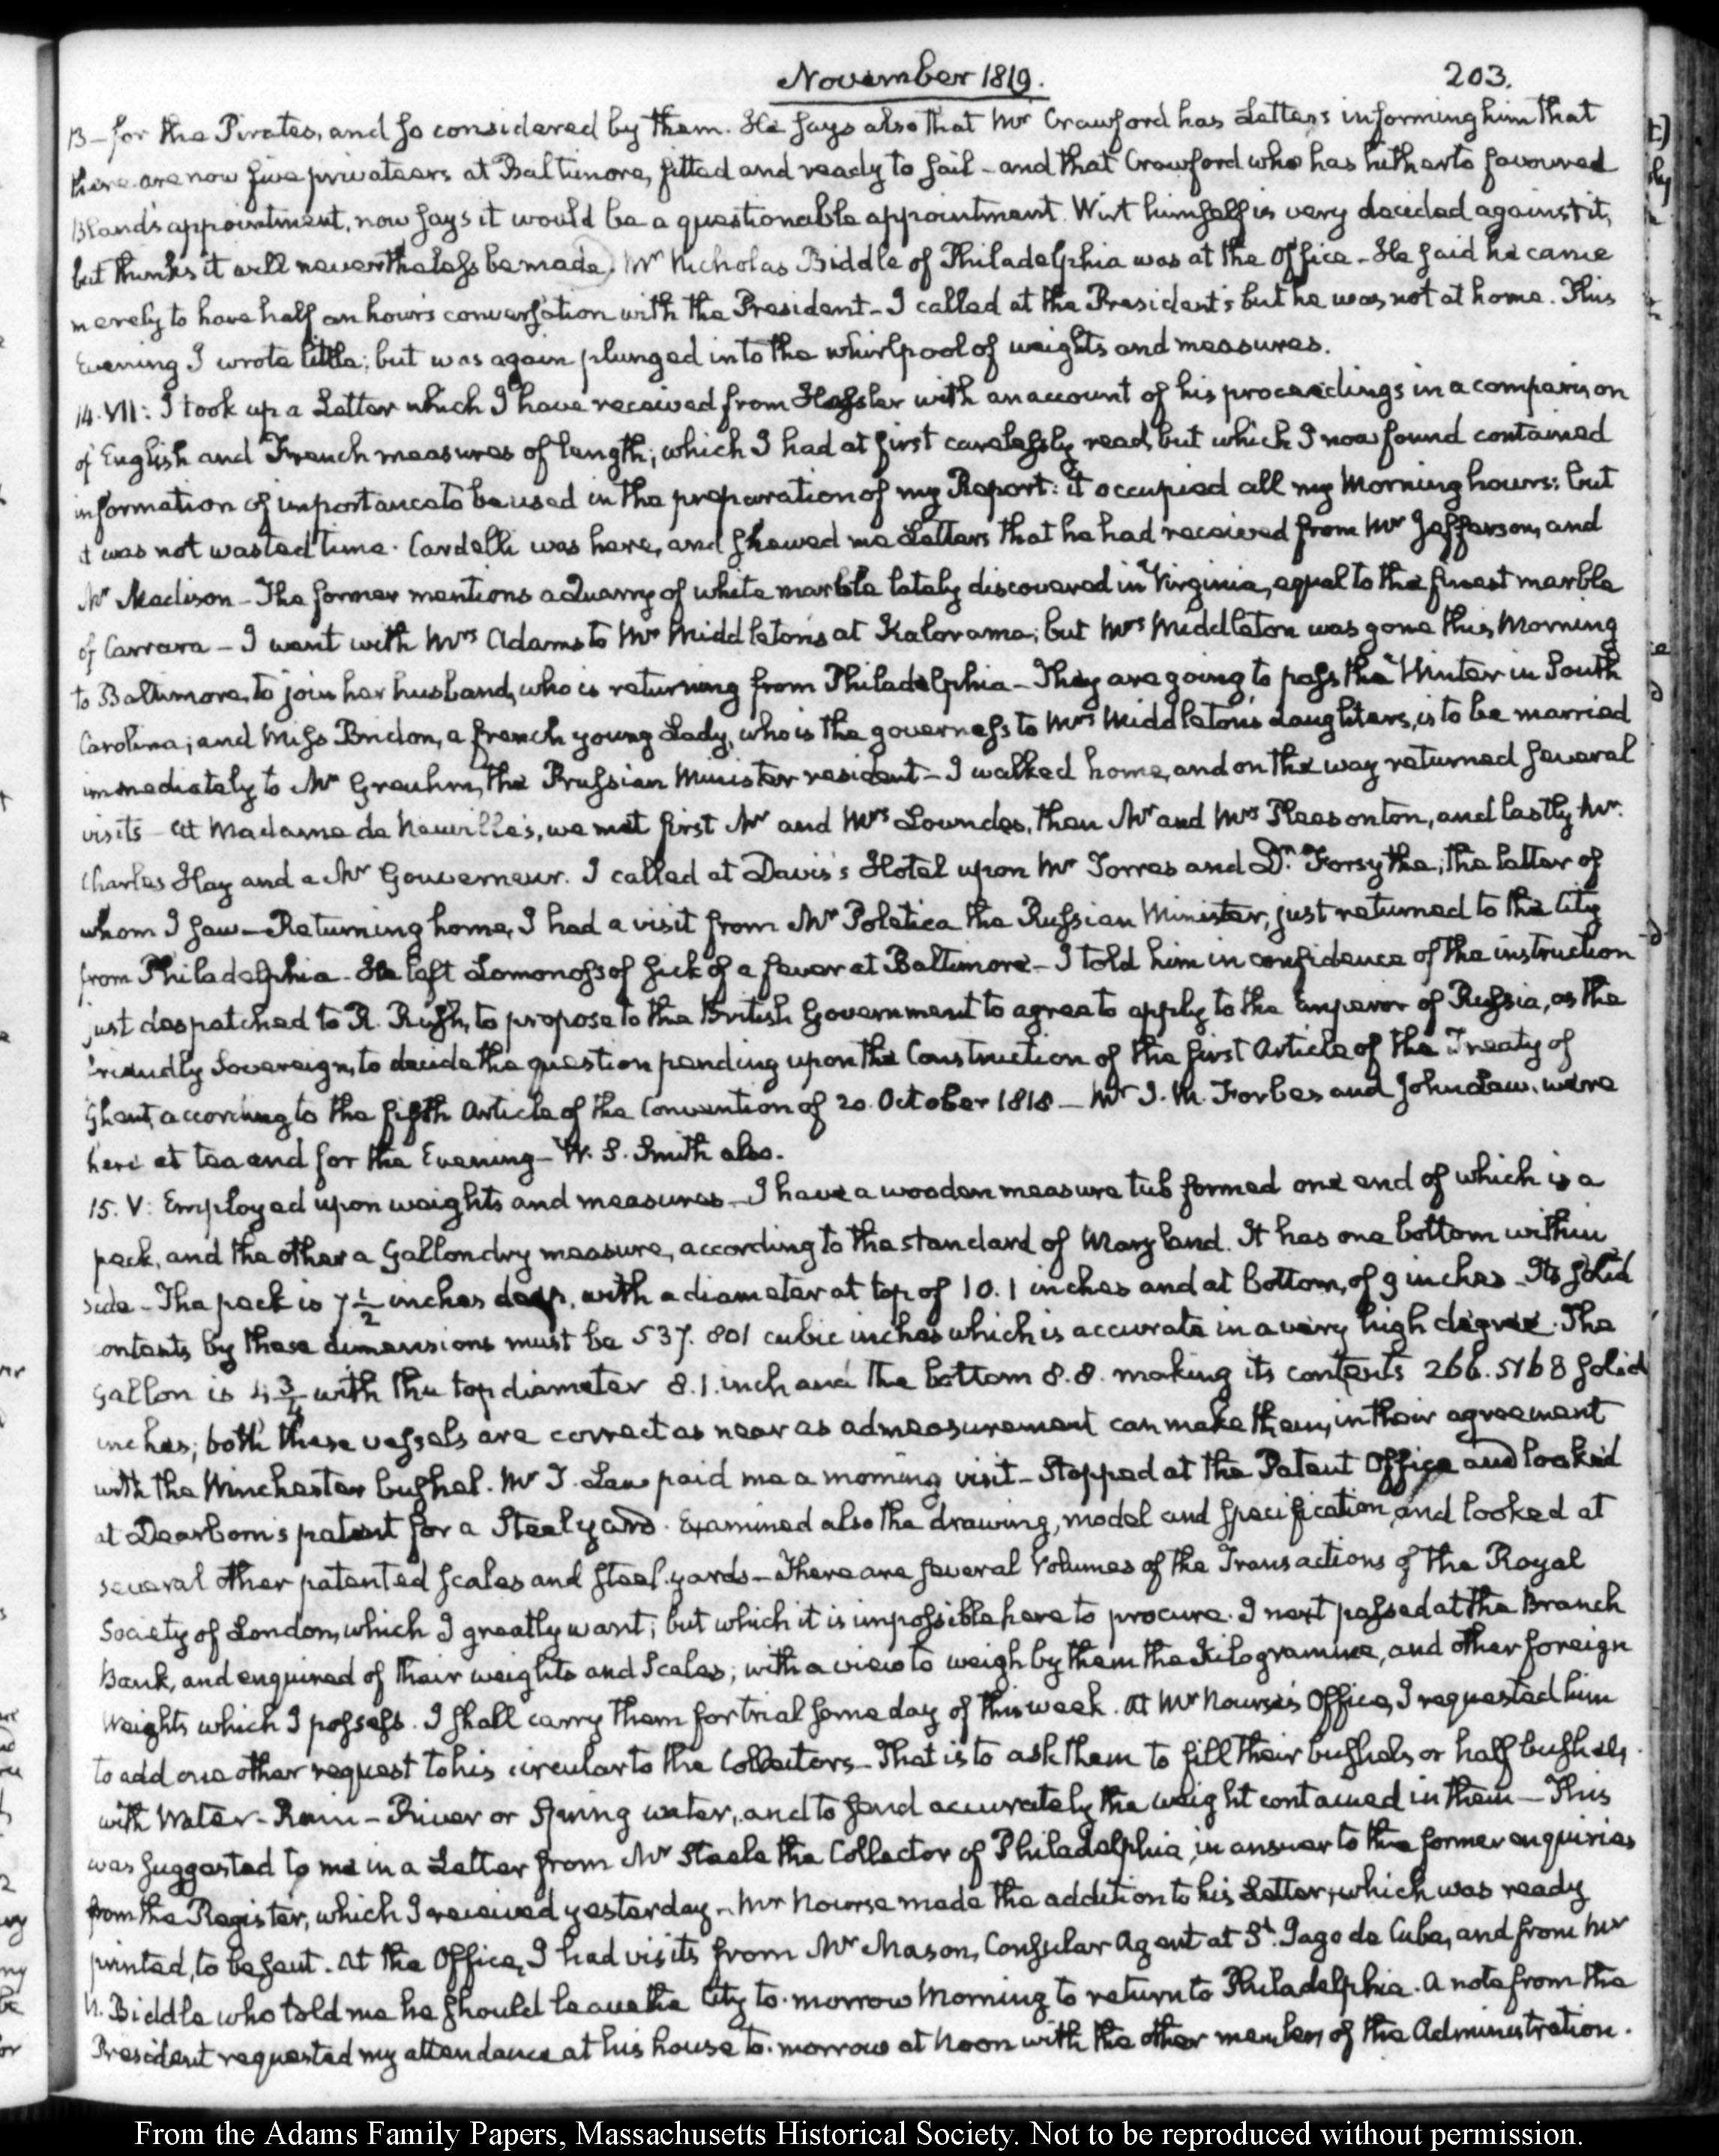 November 1819.
203.
13 - for the Pirates, and so considered by them. He says also that Mr Crawford has Letters informing him that
there are now five privateers at Baltimore, fitted and ready to sail - and that Crawford who has hitherto favoured
Bland's appointment, now says it would be a questionable appointment. Wirt himself is very decided against it,
but thinks it will nevertheless be made. Mr Nicholas Biddle of Philadelphia was at the Office - He said he came
merely to have half an hour's conversation with the President - I called at the President's but he was not at home. This
Evening I wrote little; but was again plunged into the whirlpool of weights and measures.
14. VII: I took up a Letter which I have received from Hassler with an account of his proceedings in a comparison
of English and French measures of length; which I had at first carelessly read, but which I now found contained
information of importance to be used in the preparation of my Report: it occupied all my Morning hours: but
it was not wasted time. Cardelli was here, and shewed me Letters that he had received from Mr Jefferson, and
Mr Madison - The former mentions a Quarry of white marble lately discovered in Virginia, equal to the finest marble
of Carrara - I went with Mrs Adams to Mr Middleton's at Kalorama; but Mrs Middleton was gone this Morning
to Baltimore, to join her husband, who is returning from Philadelphia - They are going to pass the Winter in South
Carolina; and Miss Bridon, a french young Lady, who is the governess to Mrs Middleton's daughters, is to be married
immediately to Mr Greuhm, the Prussian Minister resident - I walked home, and on the way returned several
visits - At Madame de Neuville's, we met first Mr and Mrs Lowndes, then Mr and Mrs Pleasonton, and lastly Mr.
Charles Hay and a Mr Gouverneur. I called at Davis's Hotel upon Mr Torres and Dr. Forsythe; the latter of
whom I saw - Returning home, I had a visit from Mr Poletica the Russian Minister, just returned to the City
from Philadelphia - He left Lomonossof sick of a fever at Baltimore - I told him in confidence of the instruction
just despatched to R. Rush, to propose to the British Government to agree to apply to the Emperor of Russia, as the
friendly Sovereign, to decide the question pending upon the Construction of the first Article of the Treaty of
Ghent, according to the fifth Article of the Convention of 20. October 1818 - Mr J. M. Forbes and John Law. were
here at tea and for the Evening - W. S. Smith also.
15. V: Employed upon weights and measures - I have a wooden measure tub formed one end of which is a
peck, and the other a Gallon dry measure, according to the standard of Maryland. It has one bottom within
side - The peck is 7 1/2 inches deep, with a diameter at top of 10.1 inches and at bottom, of 9 inches - Its solid
contents by these dimensions must be 537.801 cubic inches which is accurate in a very high degree. The
Gallon is 4 3/4 with the top diameter 8.1. inch and the bottom 8.8. making its contents 266.5168 solid
inches; both these vessels are correct as near as admeasurement can make them, in their agreement
with the Winchester bushel. Mr T. Law paid me a morning visit - Stopped at the Patent Office and looked
at Dearborn's patent for a Steelyard. Examined also the drawing, model and specification, and looked at
several other patented scales and steel-yards - There are several Volumes of the Transactions of the Royal
Society of London, which I greatly want; but which it is impossible here to procure. I next passed at the Branch
Bank, and enquired of their weights and scales; with a view to weigh by them the Kilogramme, and other foreign
Weights which I possess. I shall carry them for trial some day of this week. At Mr Nourse's Office, I requested him
to add one other request to his circular to the Collectors - That is to ask them to fill their bushels, or half bushels,
with Water - Rain - River or Spring water, and to send accurately the weight contained in them - This
was suggested to me in a Letter from Mr Steele the Collector of Philadelphia, in answer to the former enquiries
from the Register, which I received yesterday - Mr Nourse made the addition to his Letter, which was ready
printed, to be sent. At the Office, I had visits from Mr Mason, Consular Agent at St. Iago de Cuba, and from Mr
N. Biddle who told me he should leave the City to-morrow Morning to return to Philadelphia. A note from the
President requested my attendance at his house to-morrow at Noon with the other members of the Administration.
From the Adams Family Papers, Massachusetts Historical Society. Not to be reproduced without permission.